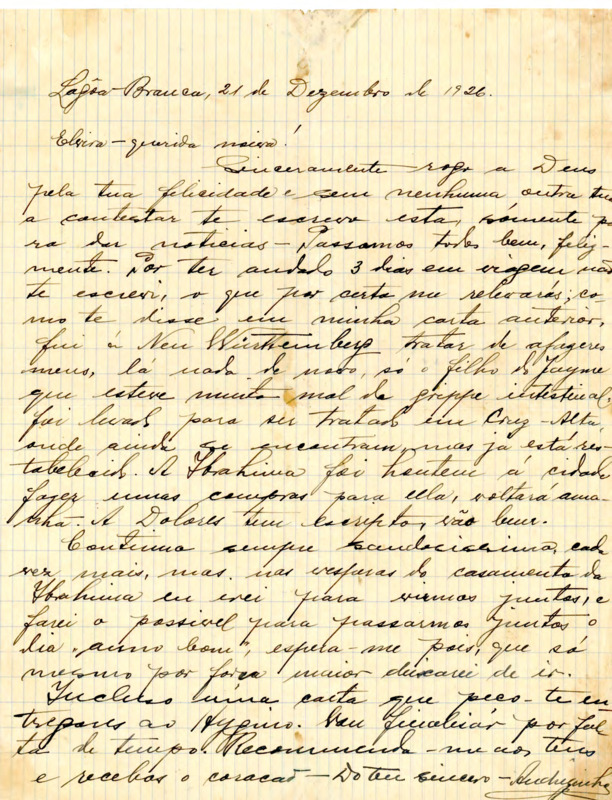 Lagôa Branca, 21 de Dezembro de 1926.
Elvira - querida noiva!
Sinceramente rogo a Deus
pela tua felicidade e sem nenhuma outra tua
a contestar te escrevo esta, sómente pa
ra dar noticias - Passamos todos bem, feliz-
mente. Por ter andado 3 dias em viagem não
te escrevi, o que por certo me relevarás; co
mo te disse em minha carta anterior,
fui á Neu Württemberg tratar de afazeres
meus, lá nada de novo, só o filho do Jayme
que esteve muito mal de grippe intestinal,
foi levado para ser tratado em Cruz-Alta,
onde ainda se encontram, mas já está res-
tabelecido. A Ibrahima foi hontem á cidade
fazer umas compras para ella, voltará ama-
nhã. A Dolores tem escripto, vão bem.
Continua sempre saudosissima, cada
vez mais, mas nas vesperas do casamento da
Ibrahima eu irei para virmos juntos, e
farei o possivel para passarmos juntos o
dia "anno bom", espera-me pois, que só
mesmo por força maior deixarei de ir.
Incluso uma carta que peço-te en
tregares ao Hygino. Vou finalizar por fal
ta de tempo. Recommenda-me aos teus
e recebas o coração - Do teu sincero -